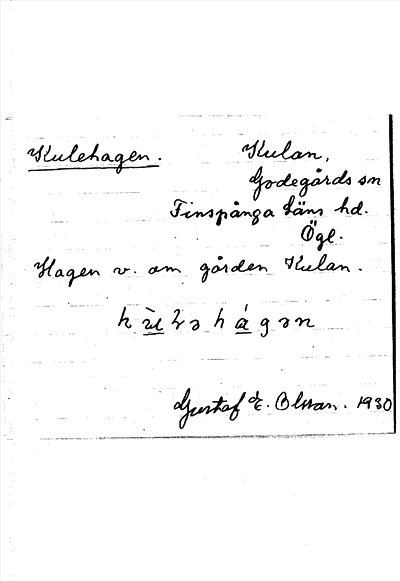 Kulehagen.
Kulan,
Godegårds sn
Finspånga Läns hd.
Ögl.
Hagen v. om gården Kulan.
Gustaf E. Olsson. 1930